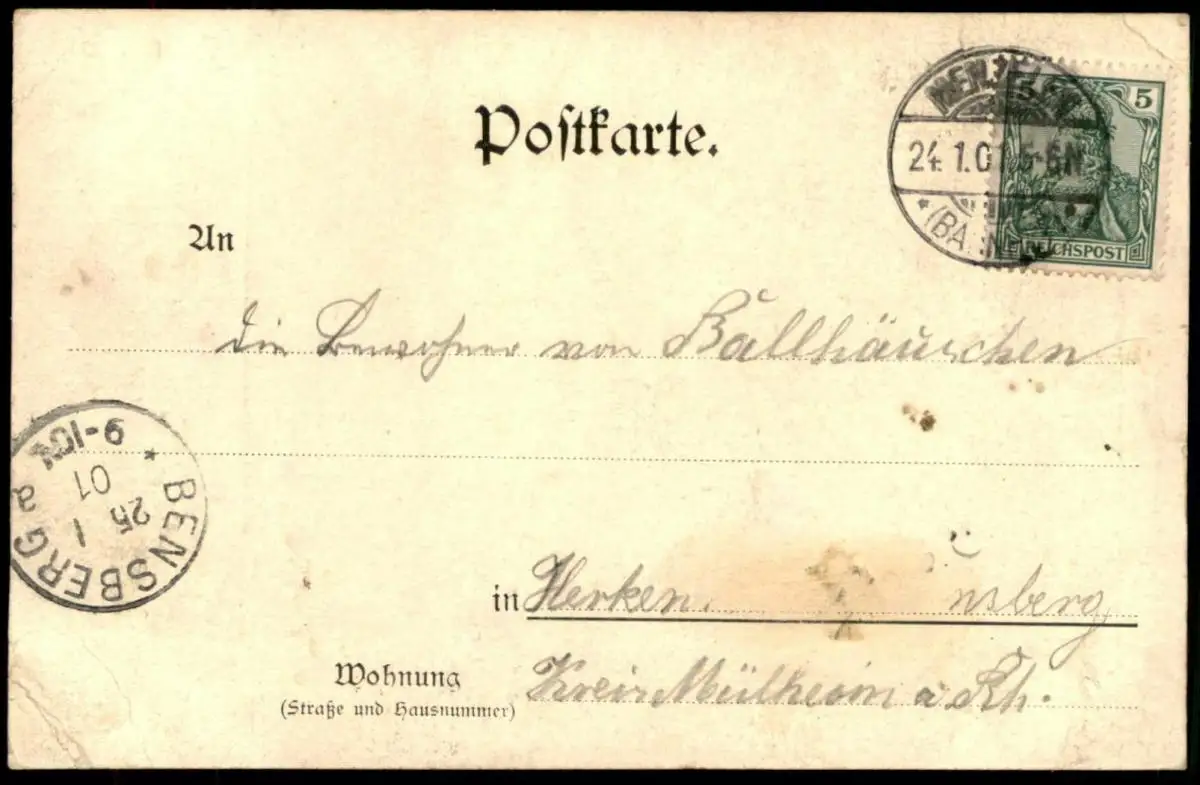 Postkarte.
5 5
24.1.01 5-6N
(BAHNHOF)
REICHSPOST
An
die Bewohner von Ballhäuschen
9-10V
25 1 01
BENSBERG a
in Herken. nsberg
Wohnung Kreis Mülheim a Rh.
(Straße und Hausnummer)